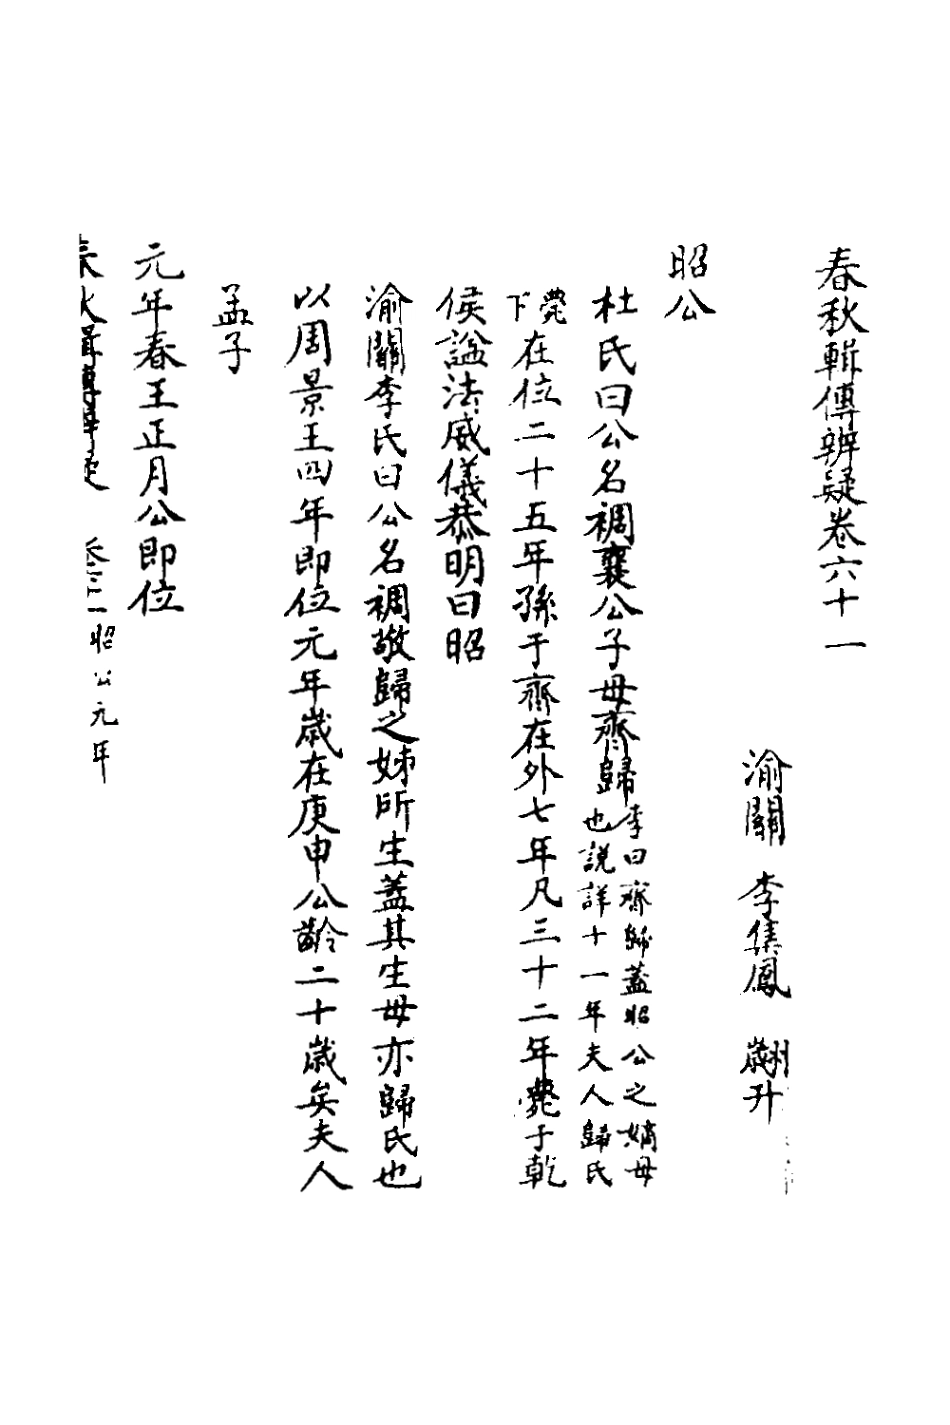 春秋輯傳辨疑卷六十一
渝關 李集鳳 翽升
昭公
杜氏曰公名裯襄公子母齊歸李曰齊歸蓋昭公之嫡母
也説詳十一年夫人歸氏
薨
下在位二十五年孫于齊在外七年凡三十二年薨于乾
侯諡法威儀恭明曰昭
渝關李氏曰公名裯敬歸之娣所生蓋其生母亦歸氏也
以周景王四年即位元年歲在庚申公齡二十歲矣夫人
孟子
元年春王正月公即位
春秋輯傳辨疑 昭公元年